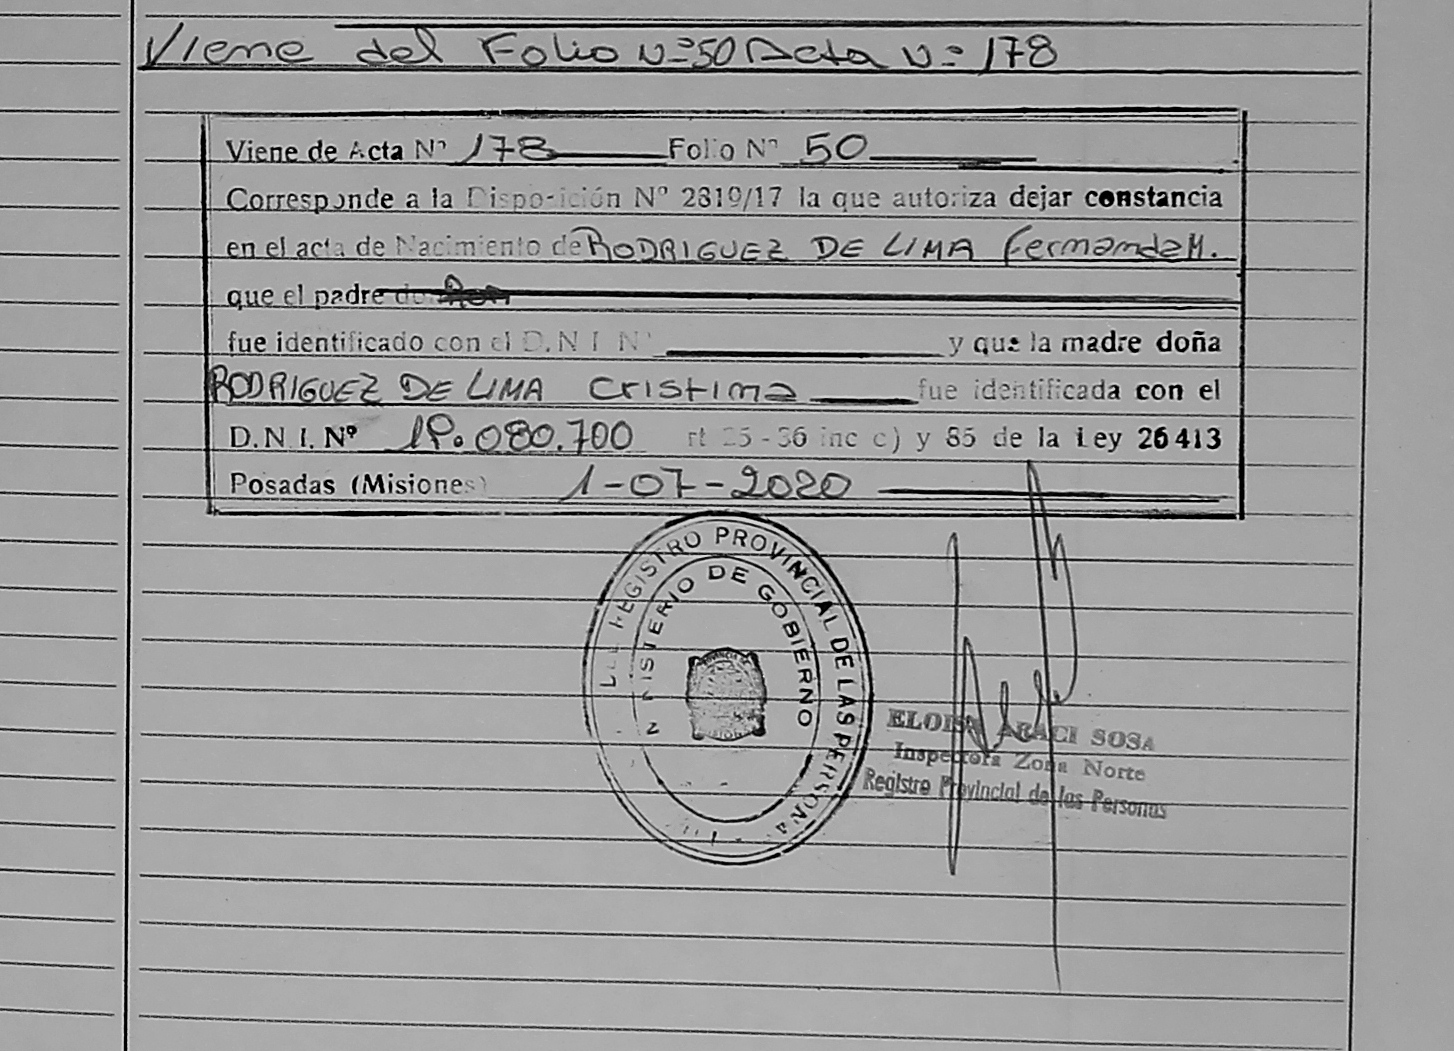 Viene del Folio Nº 50 Acta Nº 178
Viene de Acta Nº 178 Folio Nº 50
Corresponde a la Disposición Nº 2819/17 la que autoriza dejar constancia
en el acta de Nacimiento de RODRIGUEZ DE LIMA Fernanda M.
que el padre do
fue identificado con el D.N.I Nº y que la madre doña
RODRIGUEZ DE LIMA Cristina fue identificada con el
D.N.I. Nº 19.080.700 rt 25-36 inc c) y 85 de la Ley 26413
Posadas (Misiones) 1-07-2020
REGISTRO PROVINCIAL DE LAS PERSONAS
MINISTERIO DE GOBIERNO
ELOISA ARACI SOSA
Inspectora Zona Norte
Registro Provincial de las Personas